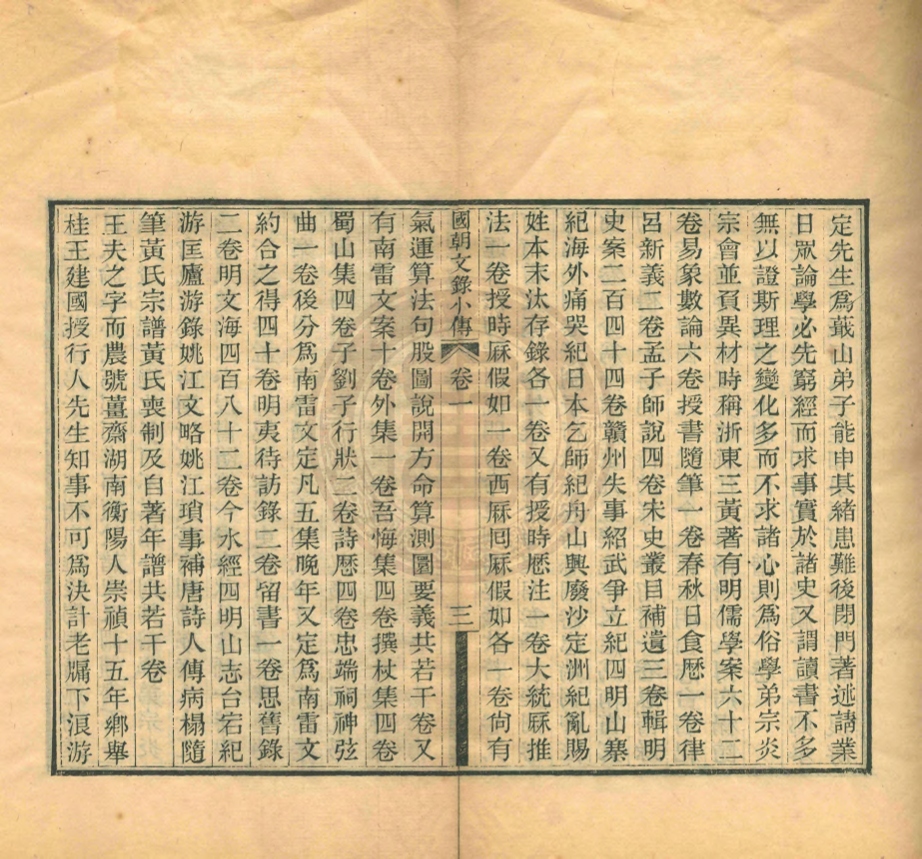 定先生爲蕺山弟子能申其緒患難後閉門著述請業
日眾論學必先窮經而求事實於諸史又謂讀書不多
無以證斯理之變化多而不求諸心則爲俗學弟宗炎
宗會並負異材時稱浙東三黃著有明儒學案六十二
卷易象數論六卷授書隨筆一卷春秋日食厯一卷律
呂新義二卷孟子師說四卷宋史叢目補遺三卷輯明
史案二百四十四卷贛州失事紹武爭立紀四明山寨
紀海外痛哭紀日本乞師紀舟山興廢沙定洲紀亂賜
姓本末汰存錄各一卷又有授時厯注一卷大統厤推
法一卷授時厤假如一卷西厤囘厤假如各一卷尙有
國朝文錄小傳 卷一 三
氣運算法句股圖說開方命算測圜要義共若干卷又
有南雷文案十卷外集一卷吾悔集四卷撰杖集四卷
蜀山集四卷子劉子行狀二卷詩厯四卷忠端祠神弦
曲一卷後分爲南雷文定凡五集晚年又定爲南雷文
約合之得四十卷明夷待訪錄二卷留書一卷思舊錄
二卷明文海四百八十二卷今水經四明山志台宕紀
游匡廬游錄姚江文略姚江瑣事補唐詩人傳病榻隨
筆黃氏宗譜黃氏喪制及自著年譜共若干卷
王夫之字而農號薑齋湖南衡陽人崇禎十五年鄉舉
桂王建國授行人先生知事不可爲決計老牖下浪游